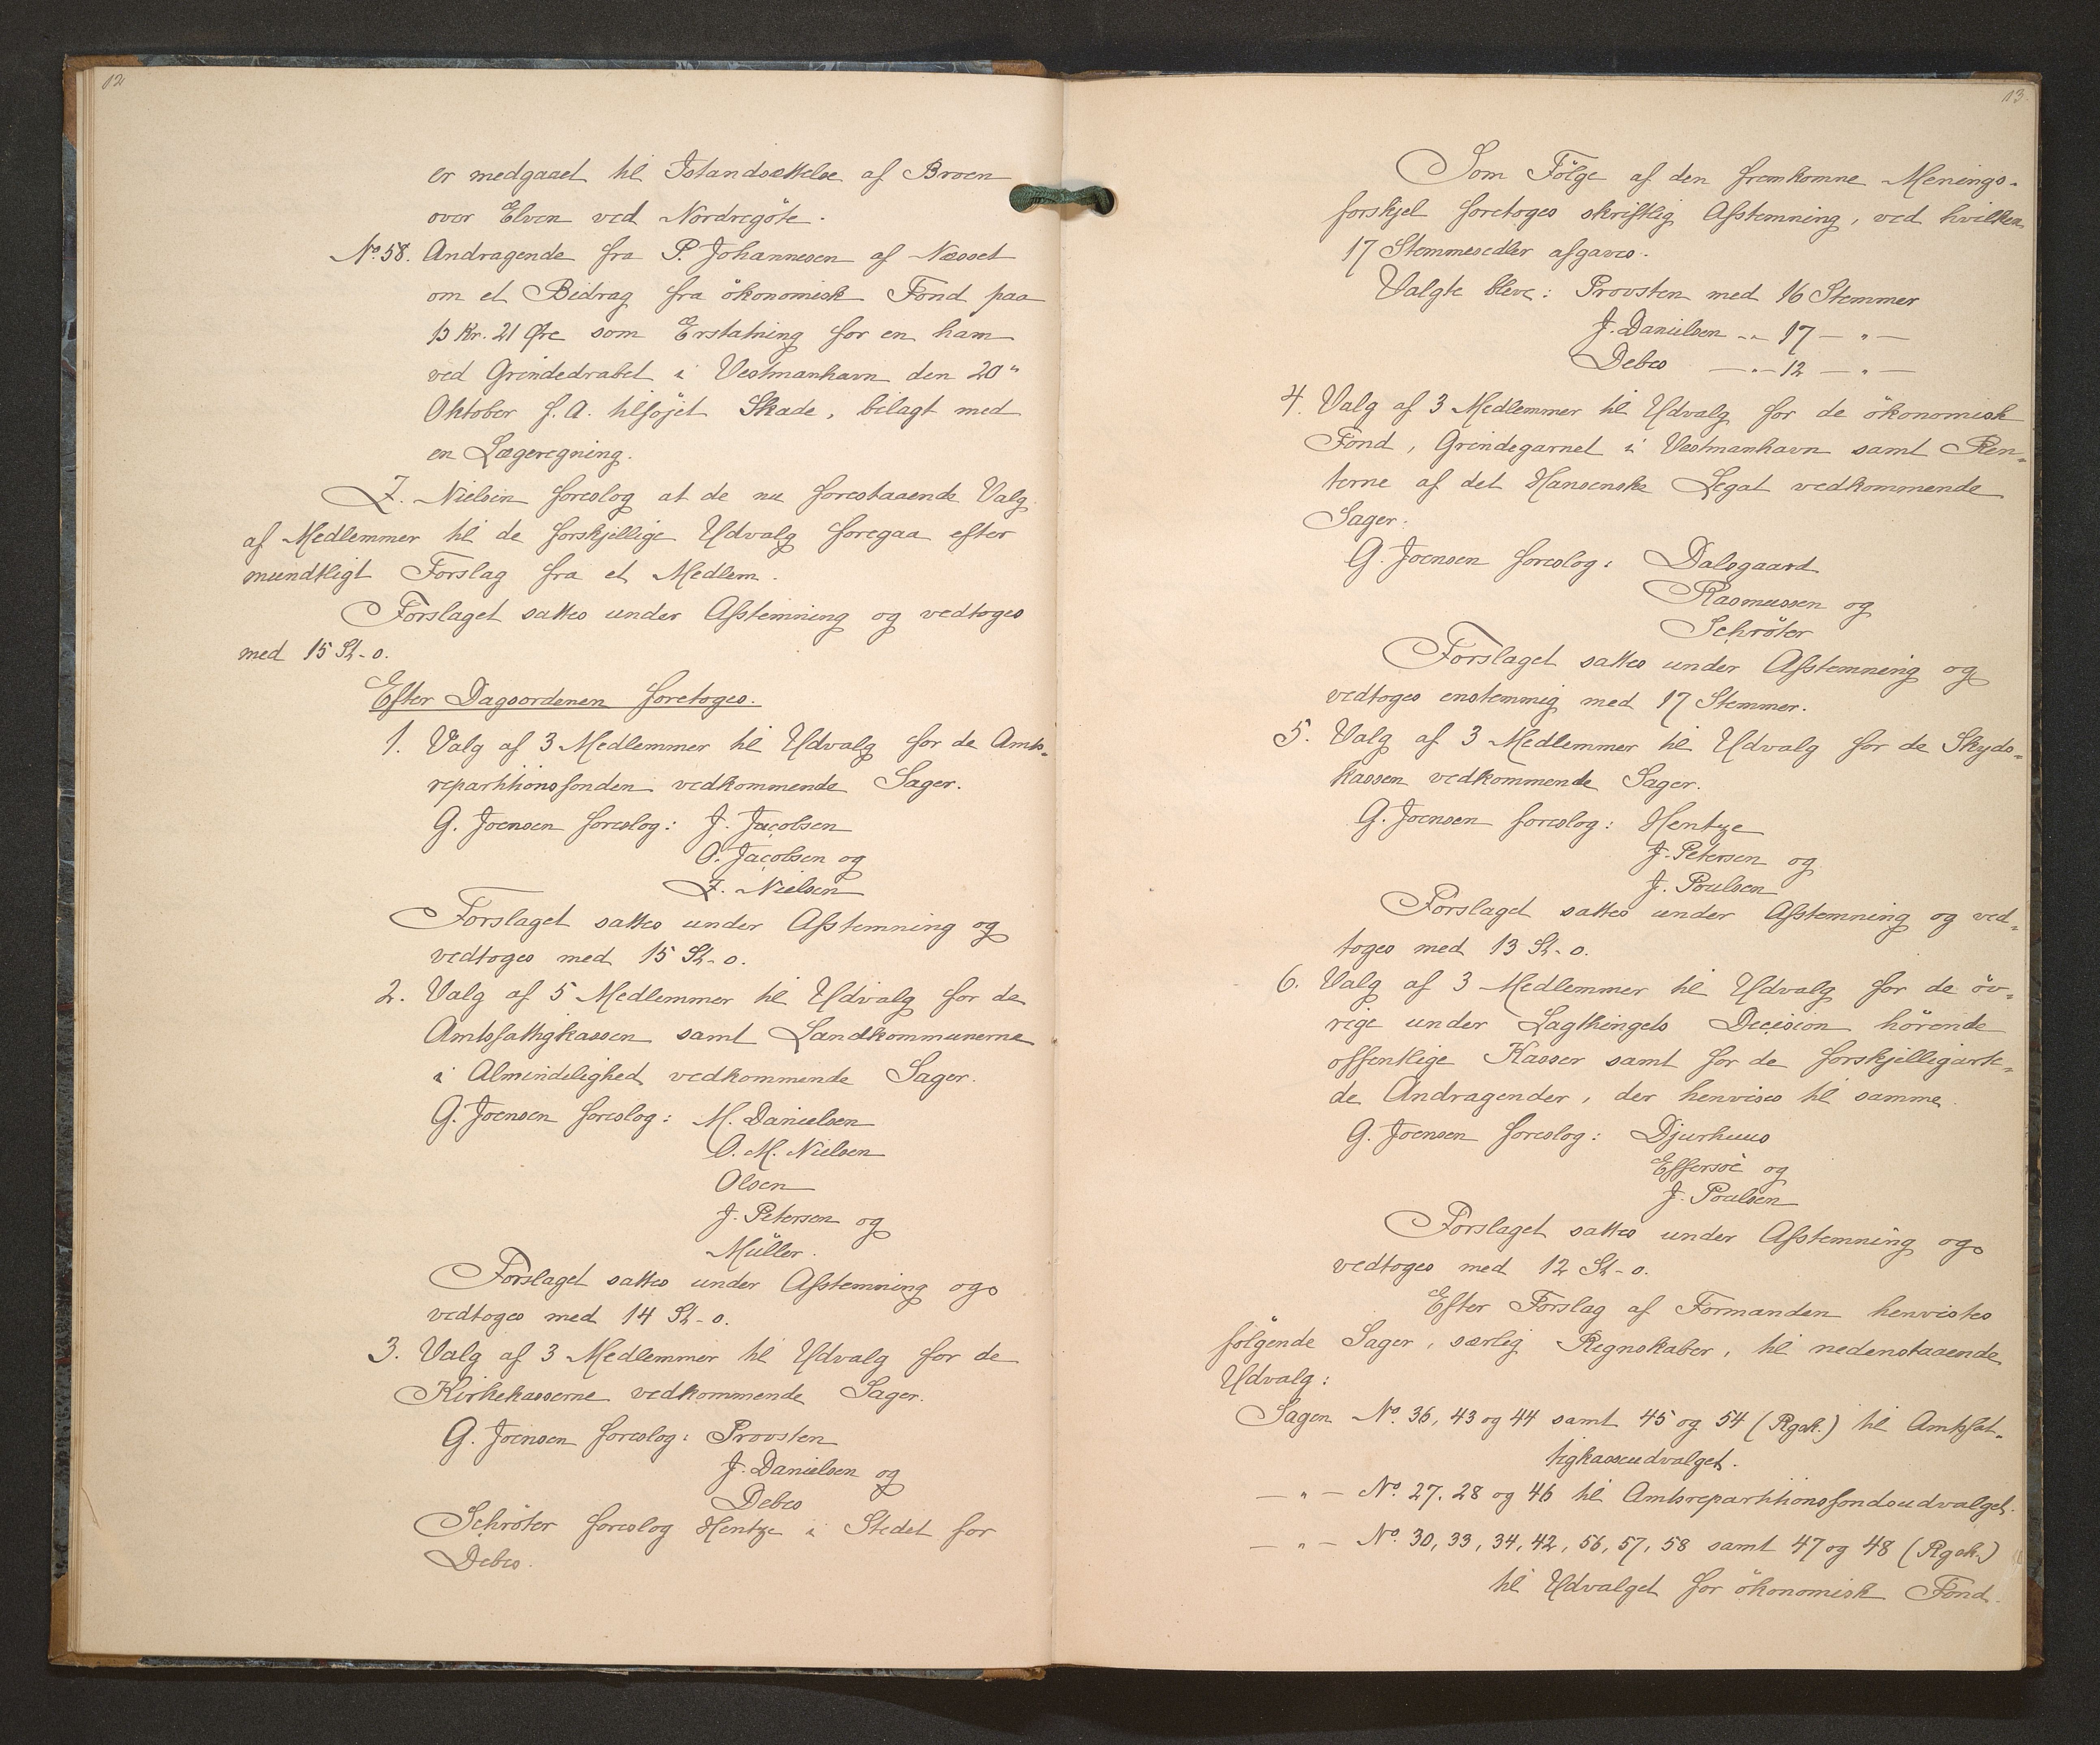 12
er medgaaet til Istandsættelse af Broen
over Elven ved Nordregöte.
No. 58. Andragende fra P. Johannesen af Næsset
om et Bidrag fra ökonomisk Fond paa
13 Kr. 21 Øre som Erstatning for en ham
ved Grindedrabet i Vestmanhavn den 20"
Oktober f. A. tilföjet Skade, bilagt med
en Lægeregning.
Z. Nielsen foreslog at de nu forestaaende Valg
af Medlemmer til de forskjellige Udvalg foregaa efter
mundtligt Forslag fra et Medlem.
Forslaget sattes under Afstemning og vedtoges
med 15 St-0.
Efter Dagsordenen foretoges.
1. Valg af 3 Medlemmer til Udvalg for de Amts-
repartitionsfonden vedkommende Sager.
G. Joensen foreslog: J. Jacobsen
O. Jacobsen og
Z. Nielsen
Forslaget sattes under Afstemning og
vedtoges med 15 St-0.
2. Valg af 5 Medlemmer til Udvalg for de
Amtsfattigkassen samt Landkommunerne
i Almindelighed vedkommende Sager.
G. Joensen foreslog: M. Danielsen
O. M. Nielsen
Olsen
J. Petersen og
Müller.
Forslaget sattes under Afstemning og
vedtoges med 14 St-0.
3. Valg af 3 Medlemmer til Udvalg for de
Kirkekasserne vedkommende Sager.
G. Joensen foreslog: Provsten
J. Danielsen og
Debes
Schröter foreslog Hentze i Stedet for
Debes.
13.
Som Fölge af den fremkomne Menings-
forskjel foretoges skriftlig Afstemning, ved hvilken
17 Stemmesedler afgaves.
Valgte bleve: Provsten med 16 Stemmer
J. Danielsen -"- 17 - " -
Debes -"- 12 - " -
4. Valg af 3 Medlemmer til Udvalg for de ökonomisk
Fond, Grindegarnet i Vestmanhavn samt Ren-
terne af det Hansenske Legat vedkommende
Sager.
G. Joensen foreslog: Dalsgaard
Rasmussen og
Schröter
Forslaget sattes under Afstemning og
vedtoges enstemmig med 17 Stemmer.
5. Valg af 3 Medlemmer til Udvalg for de Skyds-
kassen vedkommende Sager.
G. Joensen foreslog: Hentze
J. Petersen og
J. Poulsen
Forslaget sattes under Afstemning og ved-
toges med 13 St-0.
6. Valg af 3 Medlemmer til Udvalg for de öv-
rige under Lagthingets Decision hörende
offentlige Kasser samt for de forskjelligarte-
de Andragender, der henvises til samme.
G. Joensen foreslog: Djurhuus
Effersöe og
J. Poulsen
Forslaget sattes under Afstemning og
vedtoges med 12 St-0.
Efter Forslag af Formanden henvistes
fölgende Sager, særlig Regnskaber, til nedenstaaende
Udvalg:
Sagen No. 36, 43 og 44 samt 45 og 54 (Rgsk.) til Amtsfat-
tigkasseudvalget.
- " - No. 27, 28 og 46 til Amtsrepartitionsfondsudvalget.
- " - No. 30, 33, 34, 42, 56, 57, 58 samt 47 og 48 (Rgsk.)
til Udvalget for ökonomisk Fond.